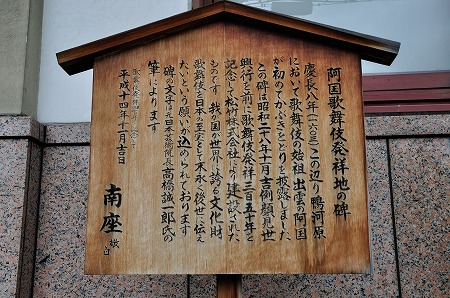 阿国歌舞伎発祥地の碑
慶長八年(一六〇三)この辺り鴨河原
において歌舞伎の始祖出雲の阿国
が初めてかぶきをどりを披露しました
この碑は昭和二十八年十一月吉例顔見世
興行を前に歌舞伎発祥三百五十年を
記念して松竹株式会社により建設された
ものです 我が国が世界に誇る文化財
歌舞伎を日本の至宝として末永く後世に伝え
たいという願いが込められております
碑の文字は元日本芸術院長高橋誠一郎氏の
筆によります
平成十四年十一月吉日
南座
敬白